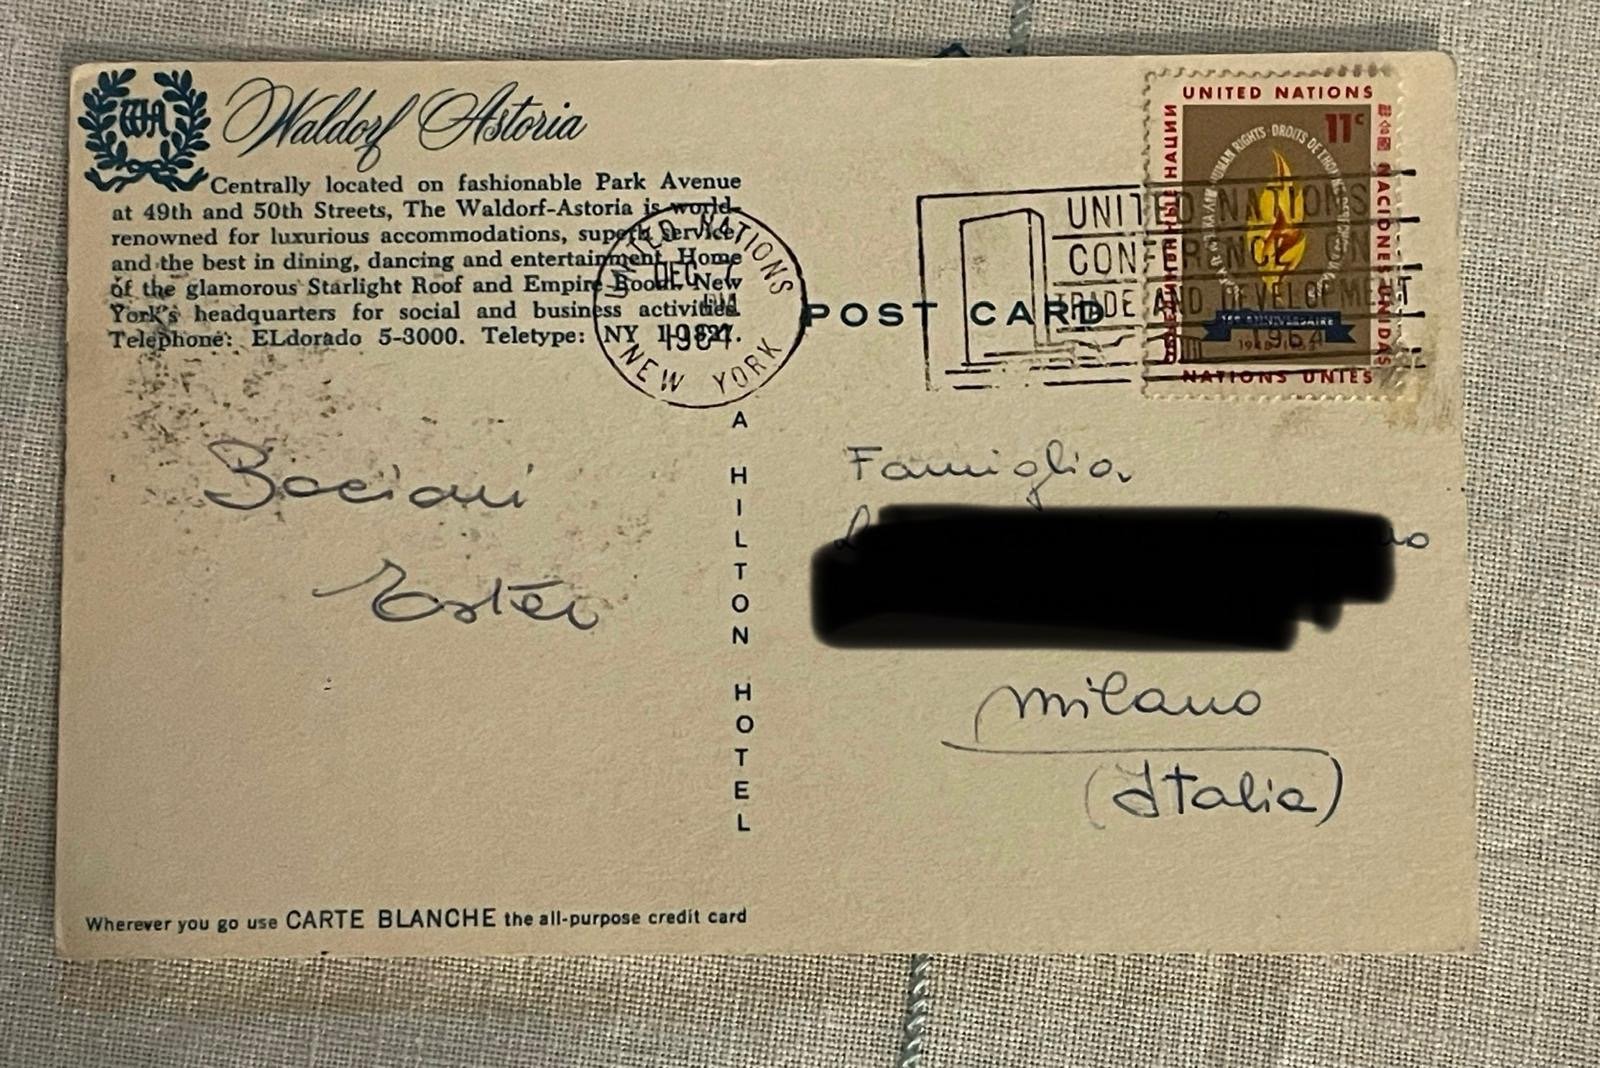 WA
Waldorf Astoria
Centrally located on fashionable Park Avenue
at 49th and 50th Streets, The Waldorf-Astoria is world-
renowned for luxurious accommodations, superb service
and the best in dining, dancing and entertainment. Home
of the glamorous Starlight Roof and Empire Room. New
York's headquarters for social and business activities.
Telephone: ELdorado 5-3000. Teletype: NY
UNITED NATIONS
DEC 7
NEW YORK
POST CARD
UNITED NATIONS
CONFERENCE ON
TRADE AND DEVELOPMENT
1964
UNITED NATIONS
11c
HUMAN RIGHTS · DROITS DE L'HOMME
NACIONES UNIDAS
NATIONS UNIES
Bacioni
Ester
A HILTON HOTEL
Famiglia
Milano
(Italia)
Wherever you go use CARTE BLANCHE the all-purpose credit card